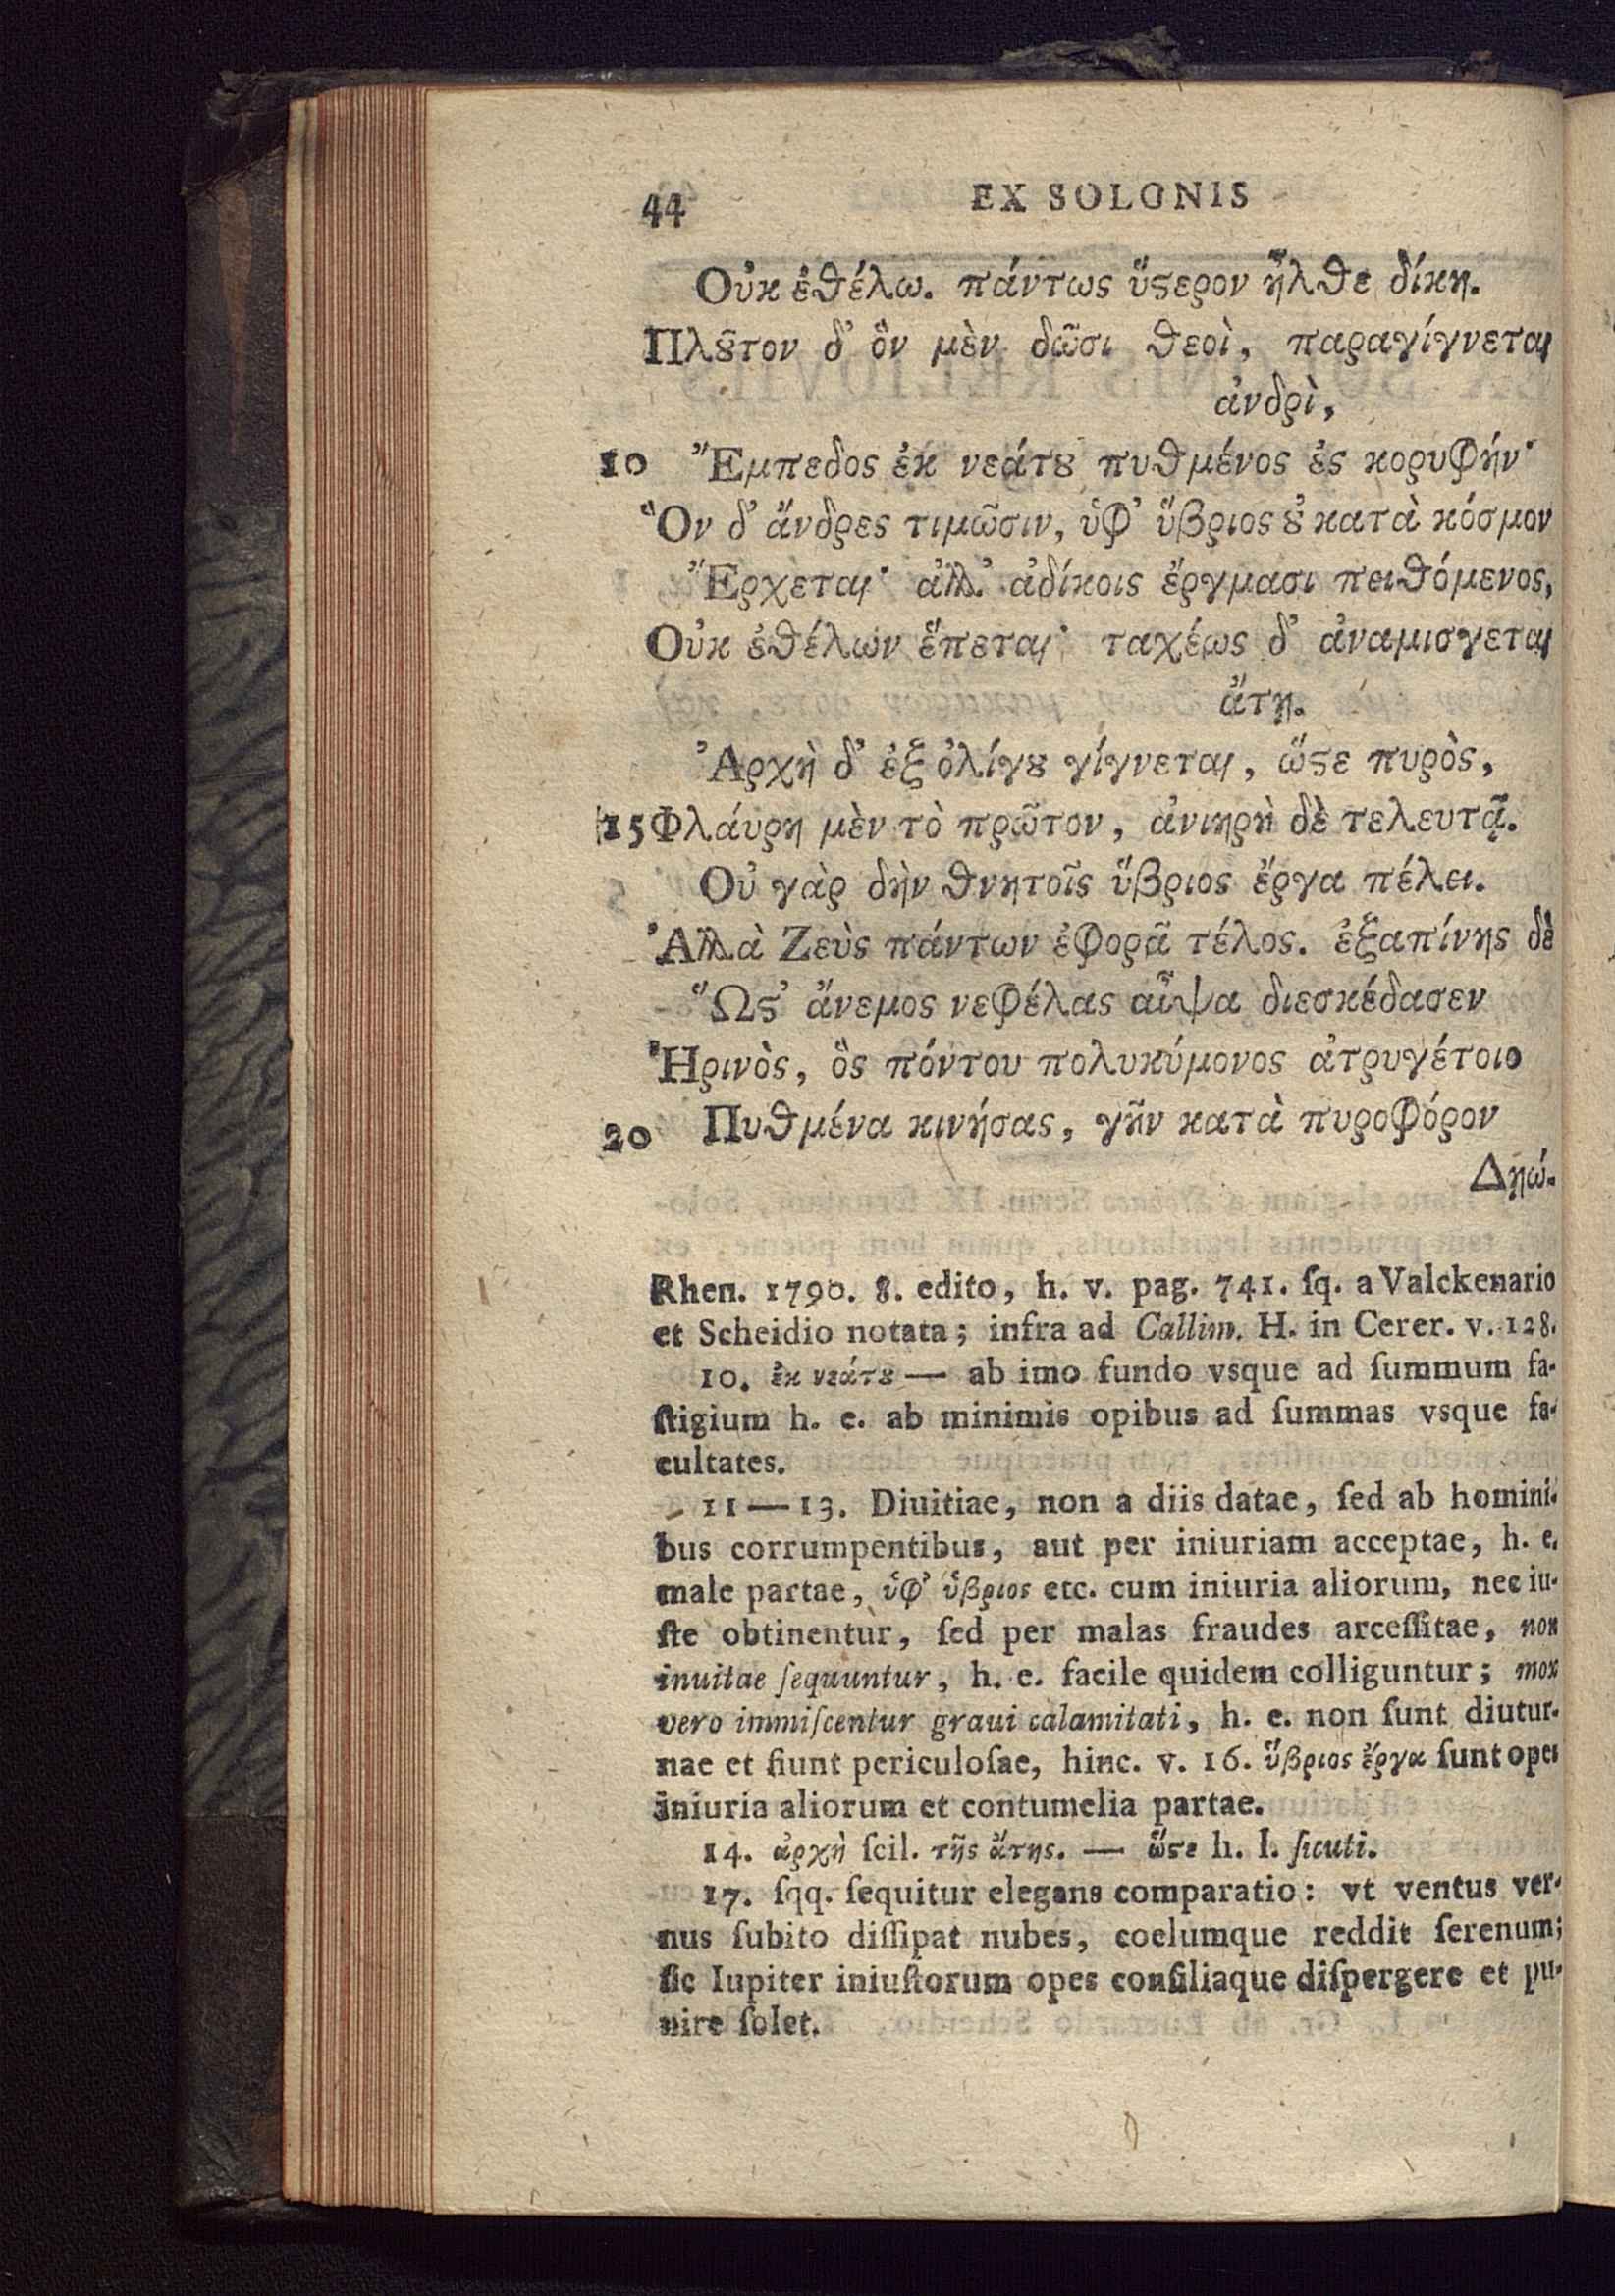 44 EX SOLONIS
Οὐκ ἐθέλω. πάντως ὕϛερον ἦλθε δίκη.
Πλȣ͂τον δ' ὃν μὲν δῶσι θεοὶ, παραγίγνεται
ἀνδρὶ,
10 Ἔμπεδος ἐκ νεάτȣ πυθμένος ἐς κορυφήν·
Ὃν δ' ἄνδρες τιμῶσιν, ὑφ' ὕβριος ȣ̓ κατὰ κόσμον
Ἔρχεται· ἀλλ' ἀδίκοις ἔργμασι πειθόμενος,
Οὐκ ἐθέλων ἕπεται· ταχέως δ' ἀναμισγεται
ἄτη.
Ἀρχὴ δ' ἐξ ὀλίγȣ γίγνεται, ὥϛε πυρὸς,
15 Φλάυρη μὲν τὸ πρῶτον, ἀνιηρὴ δὲ τελευτᾷ.
Οὐ γὰρ δὴν θνητοῖς ὕβριος ἔργα πέλει.
Ἀλλὰ Ζεὺς πάντων ἐφορᾷ τέλος. ἐξαπίνης δὲ
Ὥϛ' ἄνεμος νεφέλας αἶψα διεσκέδασεν
Ἠρινὸς, ὃς πόντου πολυκύμονος ἀτρυγέτοιο
20 Πυθμένα κινήσας, γῆν κατὰ πυροφόρον
Δηώ-
Rhen. 1790. 8. edito, h. v. pag. 741. ſq. a Valckenario
et Scheidio notata; infra ad Callim. H. in Cerer. v. 128.
10. ἐκ νεάτȣ — ab imo fundo vsque ad ſummum fa-
ſtigium h. e. ab minimis opibus ad ſummas vsque fa-
cultates.
11—13. Diuitiae, non a diis datae, ſed ab homini-
bus corrumpentibus, aut per iniuriam acceptae, h. e.
male partae, ὑφ' ὕβριος etc. cum iniuria aliorum, nec iu-
ſte obtinentur, ſed per malas fraudes arceſſitae, non
inuitae ſequuntur, h. e. facile quidem colliguntur; mox
vero immiſcentur graui calamitati, h. e. non ſunt diutur-
nae et fiunt periculoſae, hinc. v. 16. ὕβριος ἔργα ſunt opes
iniuria aliorum et contumelia partae.
14. ἀρχὴ ſcil. τῆς ἄτης. — ὥϛε h. I. ſicuti.
17. ſqq. ſequitur elegans comparatio: vt ventus ver-
nus ſubito diſſipat nubes, coelumque reddit ſerenum;
ſic Iupiter iniuſtorum opes conſiliaque diſpergere et pu-
nire ſolet.